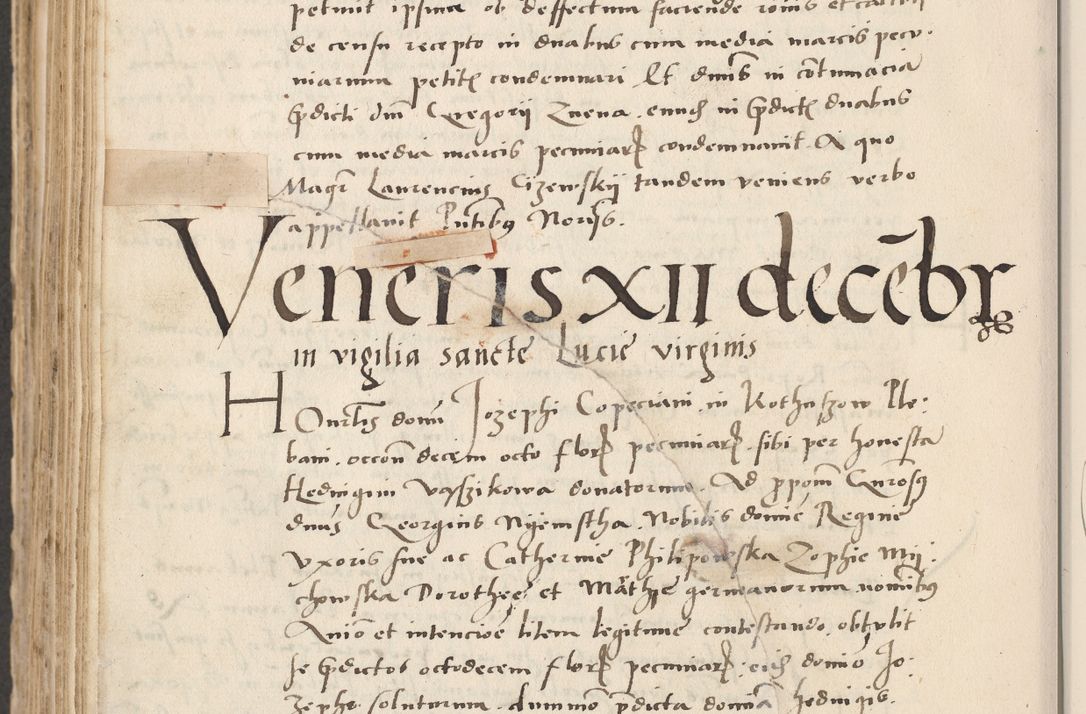 petiuit ipsum ob deffectum faciende
de censu recepto in duabus cum media marcis pecu⸗
niarum petit condemnari Et dms in cōtumaciā
pdicti dni Gregorij Zueua. eundē in pdict duabus
cum media marcis pecuniar condemnauit A quo
Magr Laurencius Cizewskij tandem veniens verbo
appellauit Pntibus Noris.
Veneris XII decēbr
in vigilia sancte Lucie virginis
HOnrlis domi Jozephi Copeciani in Ple⸗
bani. occon decem octo flor pecuniar sibi per honesta
Hedvigim donatorum. Ad
dnus Georgius Nyemstha. Nobilis domie Regine
Vxoris sue ac Catherine Philipowska Zophie Mij⸗
chowska Dorothee et Mathie germanorum nominibus
Anīo et intencioē litem legitime contestando. obtulit
se pdictos octodecem flor pecuniar. domio Jo⸗
zepho soluturum. dummo pdicta domina hedvigis.